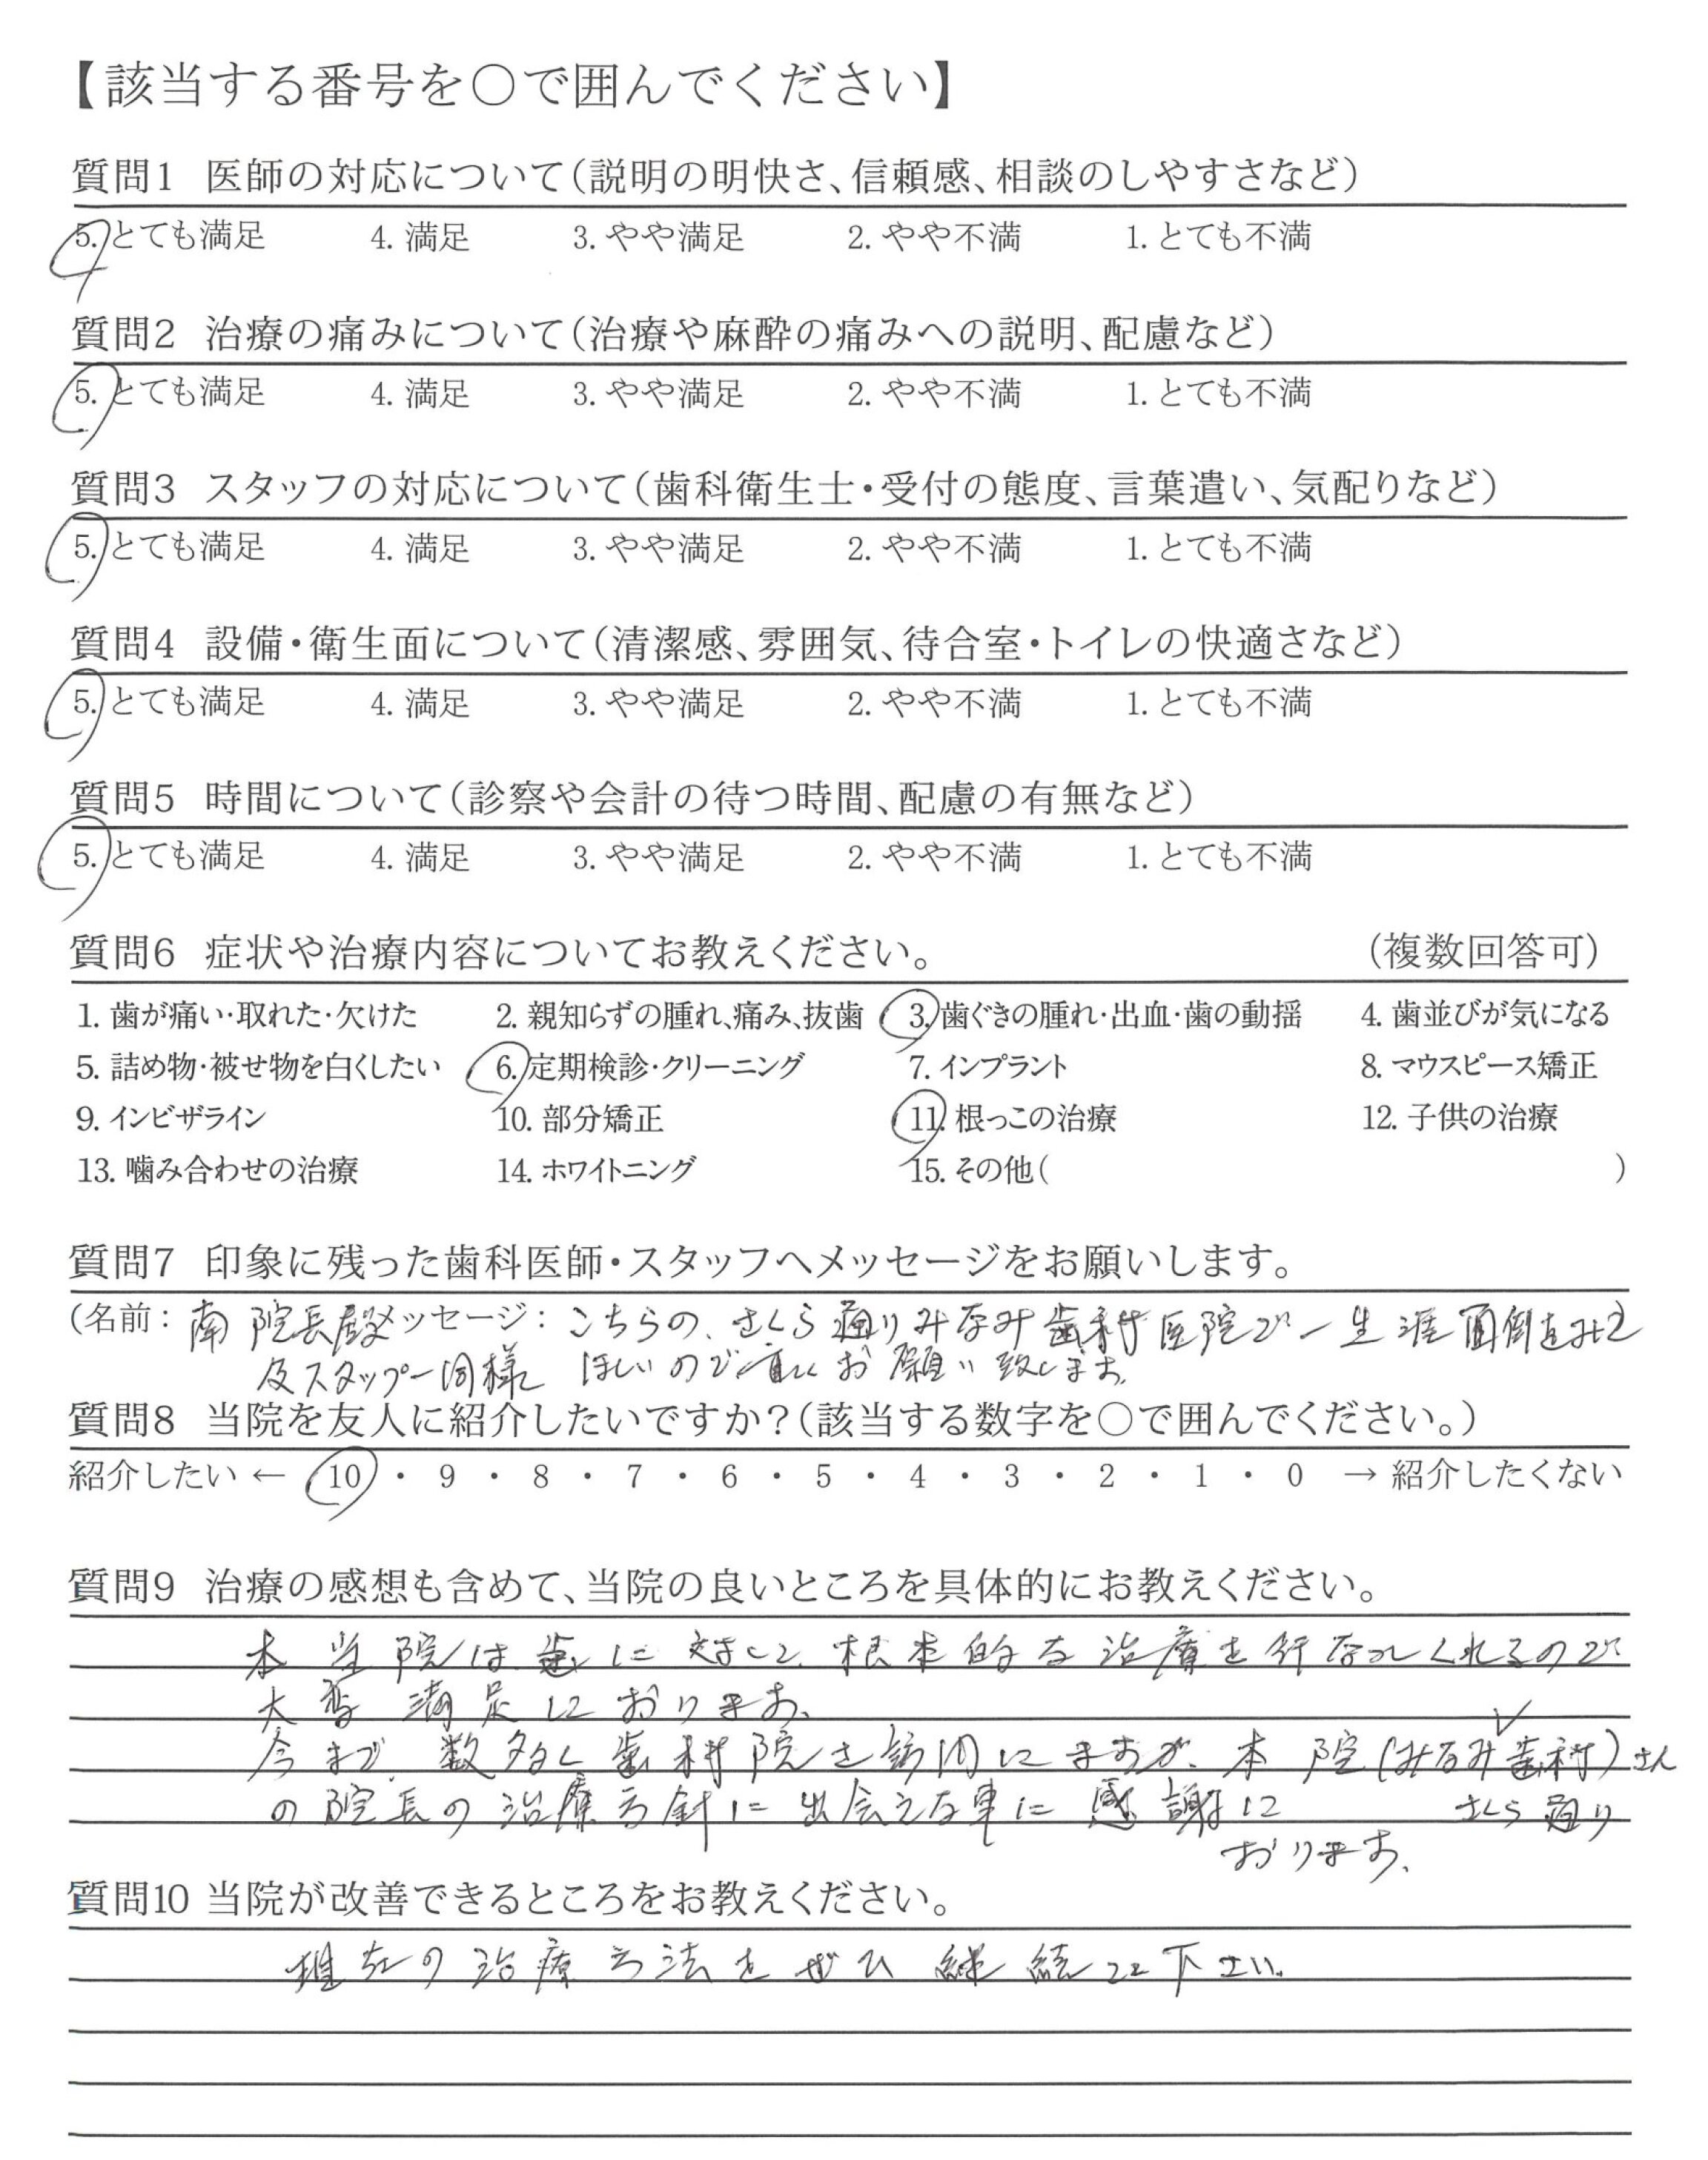 【該当する番号を〇で囲んでください】
質問1 医師の対応について(説明の明快さ、信頼感、相談のしやすさなど)
5. とても満足 4. 満足 3. やや満足 2. やや不満 1. とても不満
質問2 治療の痛みについて(治療や麻酔の痛みへの説明、配慮など)
5. とても満足 4. 満足 3. やや満足 2. やや不満 1. とても不満
質問3 スタッフの対応について(歯科衛生士・受付の態度、言葉遣い、気配りなど)
5. とても満足 4. 満足 3. やや満足 2. やや不満 1. とても不満
質問4 設備・衛生面について(清潔感、雰囲気、待合室・トイレの快適さなど)
5. とても満足 4. 満足 3. やや満足 2. やや不満 1. とても不満
質問5 時間について(診察や会計の待つ時間、配慮の有無など)
5. とても満足 4. 満足 3. やや満足 2. やや不満 1. とても不満
質問6 症状や治療内容についてお教えください。 (複数回答可)
1. 歯が痛い・取れた・欠けた 2. 親知らずの腫れ、痛み、抜歯 3. 歯ぐきの腫れ・出血・歯の動揺 4. 歯並びが気になる
5. 詰め物・被せ物を白くしたい 6. 定期検診・クリーニング 7. インプラント 8. マウスピース矯正
9. インビザライン 10. 部分矯正 11. 根っこの治療 12. 子供の治療
13. 噛み合わせの治療 14. ホワイトニング 15. その他( )
質問7 印象に残った歯科医師・スタッフへメッセージをお願いします。
(名前: 南 院長殿 メッセージ: こちらの、さくら通りみなみ歯科医院で一生涯面倒をみて
及スタッフ一同様 ほしいので宜しくお願い致します。
質問8 当院を友人に紹介したいですか?(該当する数字を〇で囲んでください。)
紹介したい ← 10 ・ 9 ・ 8 ・ 7 ・ 6 ・ 5 ・ 4 ・ 3 ・ 2 ・ 1 ・ 0 → 紹介したくない
質問9 治療の感想も含めて、当院の良いところを具体的にお教えください。
本当院は歯に対して、根本的な治療を行なってくれるので
大変満足しております。
今まで、数多く歯科院を訪問してますが、本院(みなみ歯科)さん
の院長の治療方針に出会えた事に感謝して さくら通り
おります。
質問10 当院が改善できるところをお教えください。
現在の治療方法をぜひ継続して下さい。